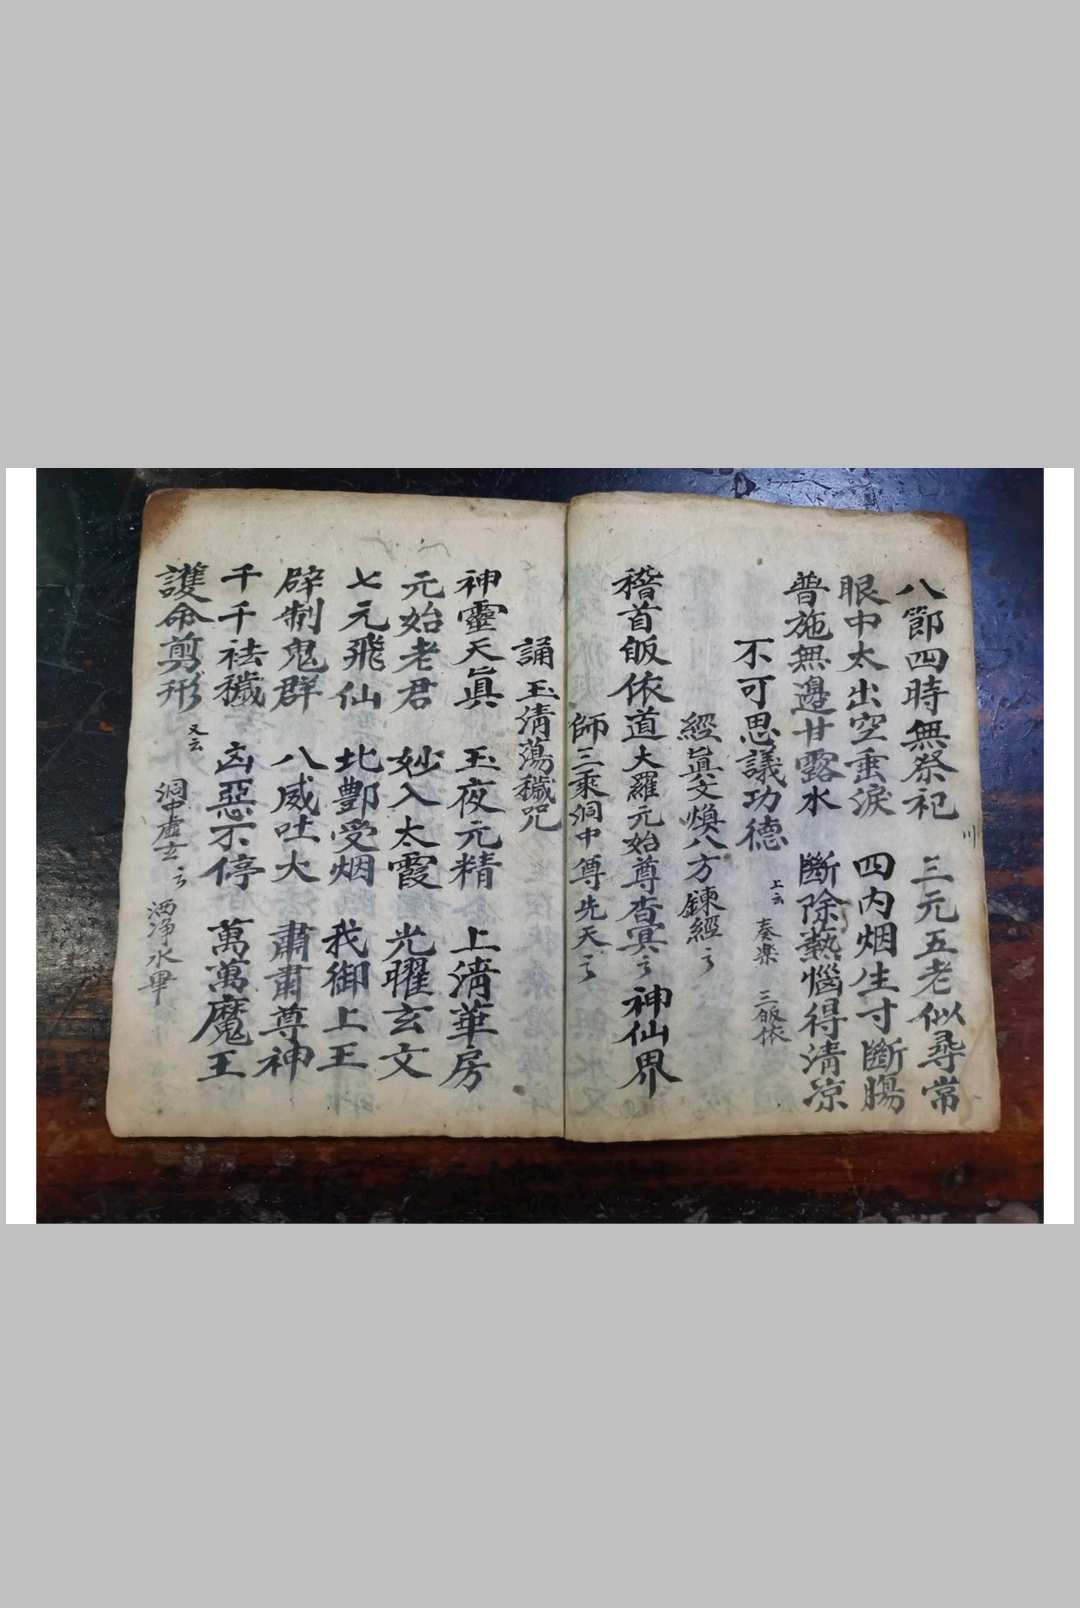 八節四時無祭祀 三元五老似尋常
眼中太出空垂淚 四内烟生寸斷腸
普施無邊甘露水 斷除熱惱得清凉
不可思議功德 上云 奏樂 三皈依
經眞文煥八方鍊經
稽首皈依道大羅元始尊杳冥神仙界
師三乘洞中尊先天
誦玉清蕩穢咒
神靈天眞 玉夜元精 上清華房
元始老君 妙入太霞 光曜玄文
七元飛仙 北酆受烟 我御上王
辟制鬼群 八威吐火 肅肅尊神
千千祛穢 凶惡不停 萬萬魔王
護命剪形 又云 洞中虛玄 洒净水畢